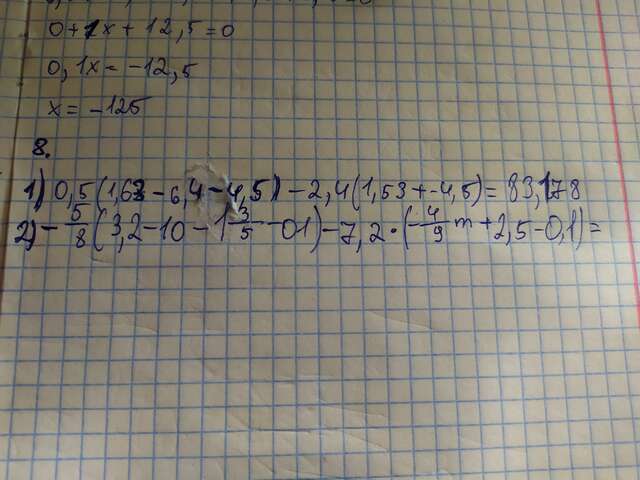 0+1x+12,5=0
0,1x=-12,5
x=-125
8.
1) 0,5(1,63-6,4-4,5)-2,4(1,53+-4,5)=83,178
2) -5/8(3,2-10-1 3/5-01)-7,2·(-4/9 m+2,5-0,1)=